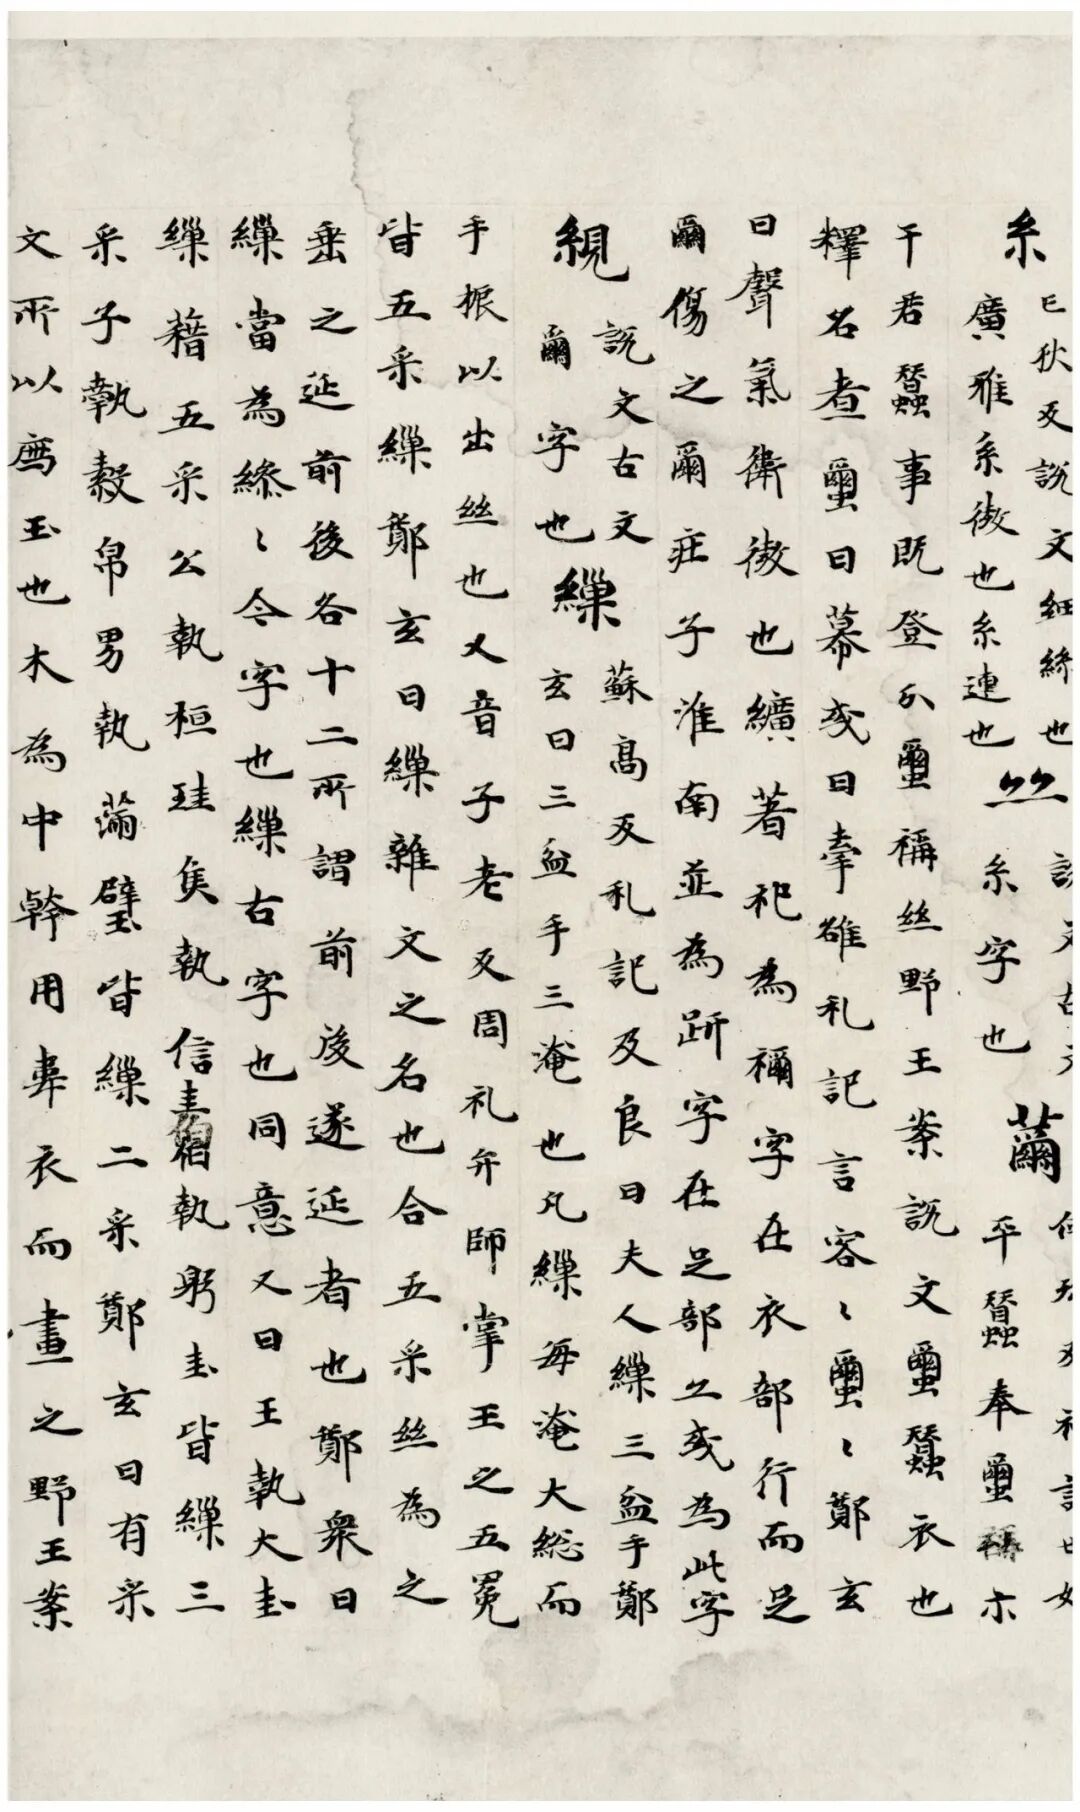 糸 亡狄反說文細絲也
廣雅糸微也糸連也
𢆶 說文古文
糸字也
繭 何珎反礼記世婦
卒蠶奉蠒示
于君蠶事既登分蠒稱絲野王案說文蠒蠶衣也
釋名煮蠒曰幕或曰牽雖礼記言容〻蠒〻鄭玄
曰聲氣衛微也纊著祀為襺字在衣部行而足
爾傷之爾疰子淮南並為趼字在足部亼或為此字
絸 說文古文
爾字也
繅 蘇高反礼記及良日夫人繅三盆手鄭
玄曰三盆手三淹也凡繅每淹大総而
手振以出絲也又音子老反周礼弁師掌王之五冕
皆五采繅鄭玄曰繅雜文之名也合五采絲為之
垂之延前後各十二所謂前後遂延者也鄭衆曰
繅當為繰〻今字也繅古字也同意又曰王執大圭
繅藉五采公執桓珪侯執信圭伯執躬圭皆繅三
采子執穀帛男執蒲璧皆繅二采鄭玄曰有采
文所以廌玉也木為中幹用韋衣而畫之野王案